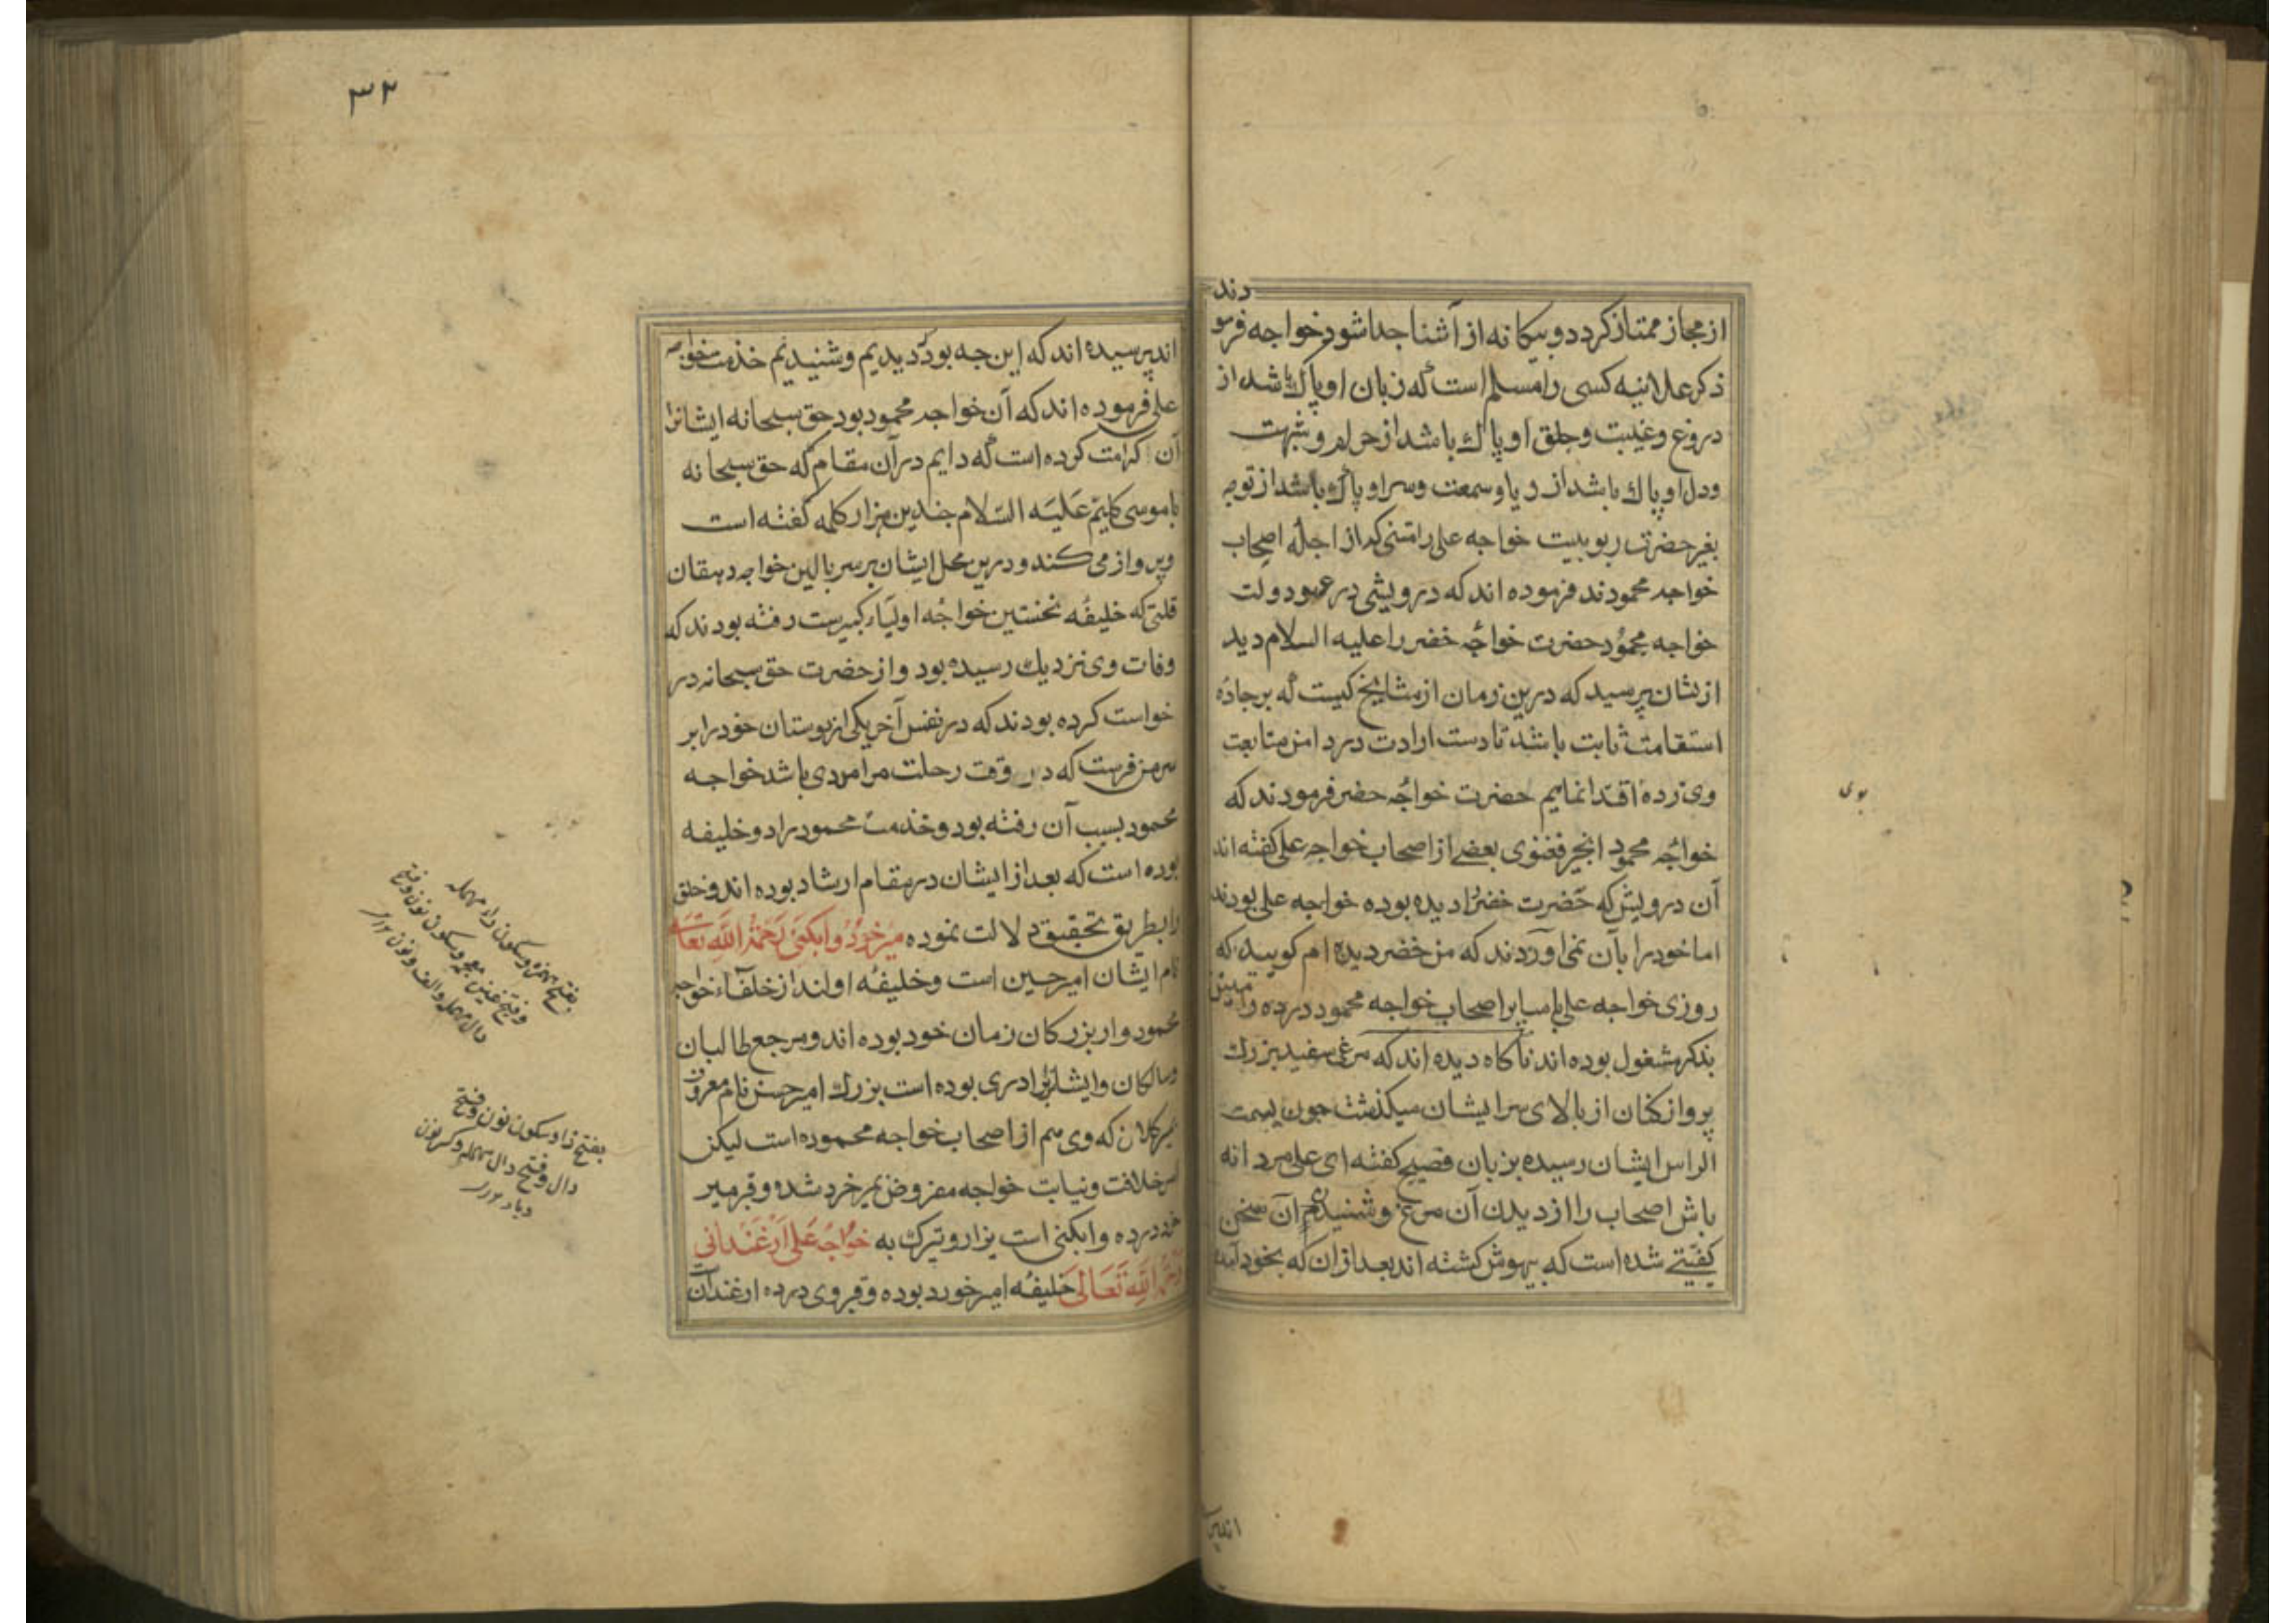 دند
از مجاز ممتاز کردد و بیکانه از آشنا جدا شود خواجه فرمو
ذکر علانیه کسی را مسلم است که زبان او پاك باشد از
دروغ و غیبت و حلق او پاك باشد از حرام و شبهت
و دل او پاك باشد از ریا و سمعت و سر او پاك باشد از توجه
بغیر حضرت ربوبیت خواجه علی رامتنی که از اجلهٔ اصحاب
خواجه محمودند فرموده اند که درویشی در عهد دولت
خواجه محمود حضرت خواجه خضر را علیه السلام دید
ازیشان پرسید که درین زمان از مشایخ کیست که بر جادهٔ
استقامت ثابت باشد تا دست ارادت در دامن متابعت
وی زده اقتدا نمایم حضرت خواجه خضر فرمودند که
خواجه محمود انجیر فغنوی بعضی از اصحاب خواجه علی کفته اند
آن درویش که حضرت خضر را دیده بوده خواجه علی بودند
اما خود را بآن نمی اوردند که من خضر دیده ام کویید که
روزی خواجه علی با سایر اصحاب خواجه محمود در ده رامیتن
بذکر مشغول بوده اند ناکاه دیده اند که مرغی سفید بزرك
پرواز کنان از بالای سر ایشان میکذشت جون بسمت
الراس ایشان رسیده بزبان فصیح کفته ای علی مردانه
باش اصحاب را از دیدن آن مرغ و شنیدن آن سخن
کیفیتی شده است که بیهوش کشته اند بعد از ان که بخود آمده
بوی
٣٢
اند پرسیده اند که این جه بود که دیدیم و شنیدیم خدمت خواجه
علی فرموده اند که آن خواجه محمود بود حق سبحانه ایشانرا
آن کرامت کرده است که دایم در آن مقام که حق سبحانه
با موسی کلیم عَلَیه السّلام جندین هزار کلمه کفته است
پرواز می کند و درین محل ایشان بر سر بالین خواجه دهقان
قلتی که خلیفهٔ نخستین خواجه اولیاء کبیرست رفته بودند که
وفات وی نزدیك رسیده بود و از حضرت حق سبحانه در
خواست کرده بودند که در نفس آخر یکی از دوستان خود را بر
سر من فرست که در وقت رحلت مرا مددی باشد خواجه
محمود بسبب آن رفته بود و خدمت محمود را دو خلیفه
بوده است که بعد از ایشان در مقام ارشاد بوده اند و خلق
را بطریق تحقیق دلالت نموده میر خورد وابکنی رحمة الله تعا
نام ایشان امیر حسین است و خلیفهٔ اولند از خلفاء خواجه
محمود و از بزرکان زمان خود بوده اند و مرجع طالبان
و سالکان و ایشانرا برادری بوده است بزرك امیر حسن نام معروف
بمیر کلان که وی هم از اصحاب خواجه محمود است لیکن
امر خلافت و نیابت خواجه مفروض بمیر خرد شده و قبر میر
خرد در ده وابکنی است یزار و یتبرك به خواجه علی ارغندانی
رحمه الله تعالی خلیفهٔ امیر خورد بوده و قبر وی در ده ارغندان
بفتح همزه و سکون راء مهمله
و فتح غین معجمه و سکون نون و فتح
دال مهمله و الف و نون
بفتح زا و سکون نون و فتح
دال و فتح دال مهمله و کسر نون